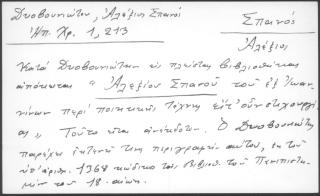 Δυοβουνιώτου, Αλέξιος Σπανός
Ηπ. Χρ. 1, 213
Σπανός
Αλέξιος
Κατά Δυοβουνιώτην εις πλείστας βιβλιοθήκας
απόκειται "Αλεξίου Σπανού του εξ Ιωαν-
νίνων περί ποιητικής τέχνης είτε ουν στιχουργίας
" Τούτο είναι ανέκδοτον. Ο Δυοβουνιώτης
παρέχει εκτενή την περιγραφήν αυτού, εκ του
υπ' αριθμ. 1368 κώδικος της Βιβλιοθ. του Πανεπιστη-
μίου του 18. αιώνος.